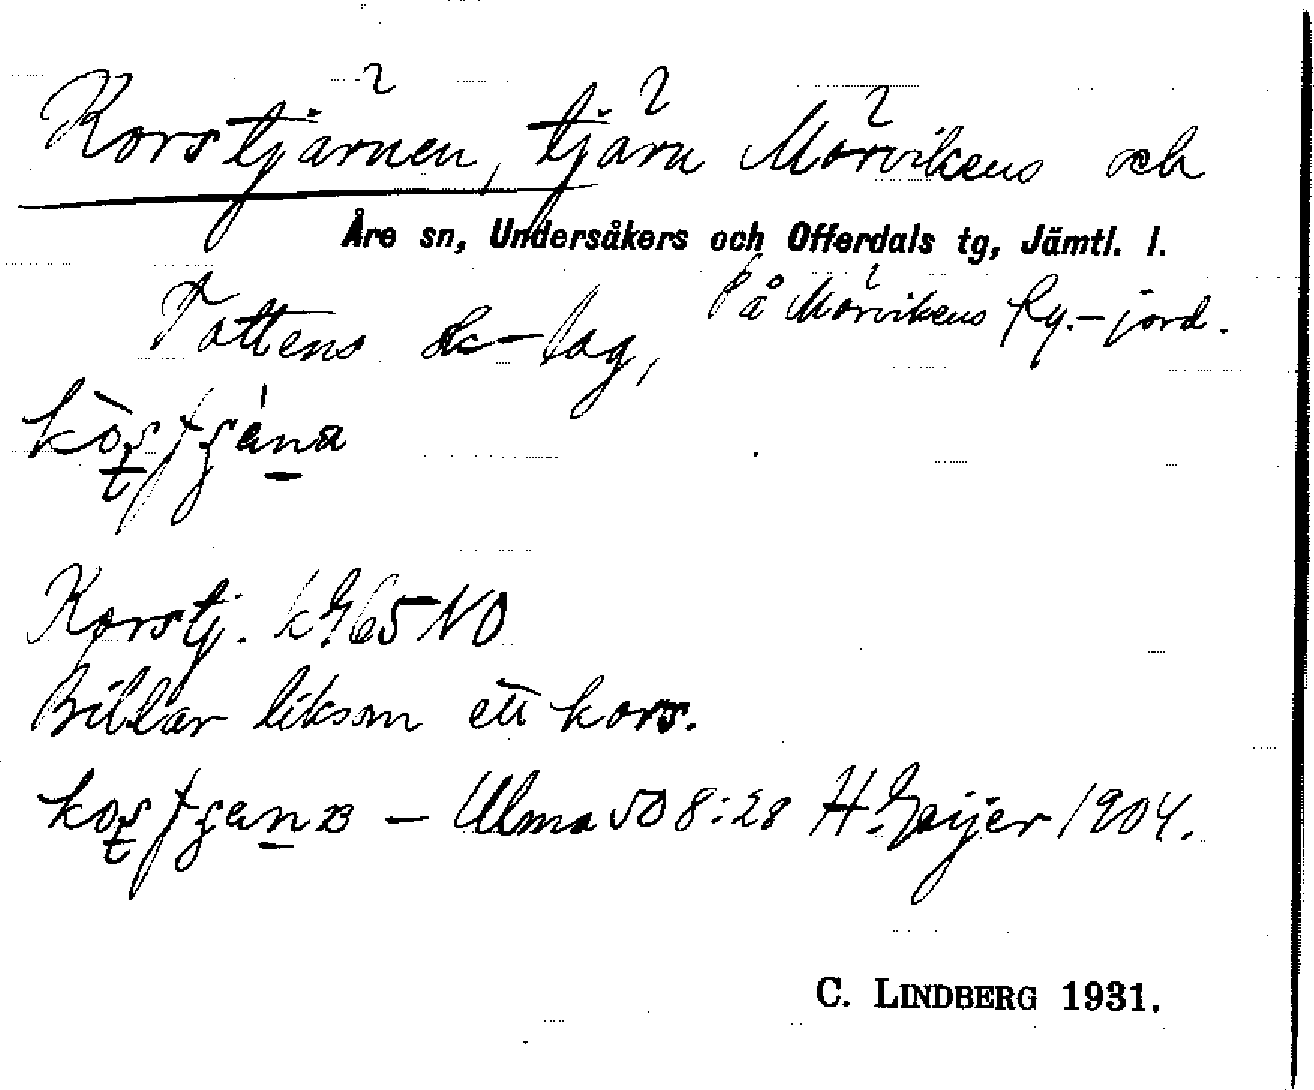 Korstjärnen, tjärn Mörvikens och
Åre sn, Undersåkers och Offerdals tg, Jämtl. l.
Tottens sk-lag, På Mörvikens ky.-jord.
Korstj. k965NO
Bildar liksom ett kors.
– Ulma 508:28 H. Geijer 1904.
C. LINDBERG 1931.